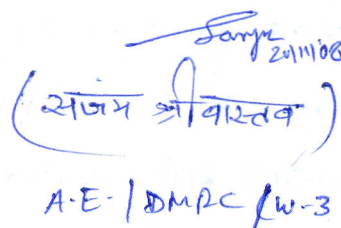 Sanjy
20/11/08
(संजय श्रीवास्तव)
A.E. / DMRC / W-3